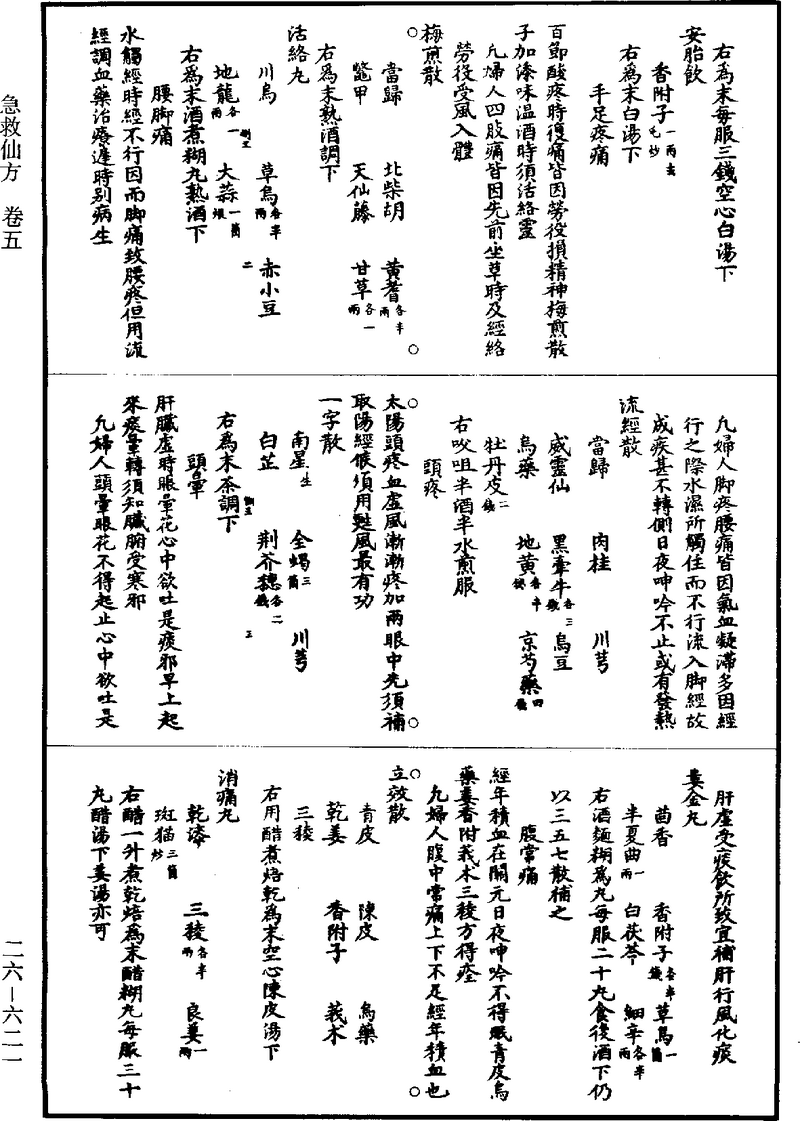 急救仙方　卷五
右為末每服三錢空心白湯下
安胎飲
香附子一兩去毛炒
右為末白湯下
手足疼痛
百節酸疼時復痛皆因勞役損精神梅煎散
子加漆味温酒時須活絡靈
凢婦人四肢痛皆因先前坐草時及經絡
勞役受風入體
梅煎散
當歸　北柴胡　黃耆各半兩
鼈甲　天仙藤　甘草各一兩
右為末熟酒調下
活絡丸
川烏　草烏各半兩　赤小豆
地龍各一兩　大蒜一箇煨
右為末酒煮糊丸熟酒下
腰脚痛
水觸經時經不行因而脚痛致腰疼但用流
經調血藥治療遲時别病生
凢婦人脚疼腰痛皆因氣血凝滯多因經
行之際水濕所觸住而不行流入脚經故
成疾甚不轉側日夜呻吟不止或有發熱
流經散
當歸　肉桂　川芎
威靈仙　黑牽牛各三錢　烏豆
烏藥　地黃各半錢　京芍藥四錢
牡丹皮二錢
右㕮咀半酒半水煎服
頭疼
太陽頭疼血虛風漸漸疼加兩眼中先須補
取陽經候須用魁風最有功
一字散
南星生　全蝎三箇　川芎
白芷　荆芥穗各二錢
右為末茶調下
頭暈
肝臟虛時眼暈花心中欲吐是痰邪早上起
來痰暈轉須知臟腑受寒邪
凢婦人頭暈眼花不得起止心中欲吐是
肝虛受痰飲所致宜補肝行風化痰
薑金丸
茴香　香附子各半錢　草烏一箇
半夏曲一兩　白茯苓　細辛各半兩
右酒麵糊為丸每服二十丸食後酒下仍
以三五七散補之
腹常痛
經年積血在關元日夜呻吟不得眠青皮烏
藥薑香附莪术三稜方得痊
凢婦人腹中常痛上下不足經年積血也
立效散
青皮　陳皮　烏藥
乾姜　香附子　莪术
三稜
右用醋煮焙乾為末空心陳皮湯下
消痛丸
乾漆　三稜各半兩　良姜一兩
斑猫三箇炒
右醋一升煮乾焙為末醋糊丸每服三十
丸醋湯下姜湯亦可
二六—六二一